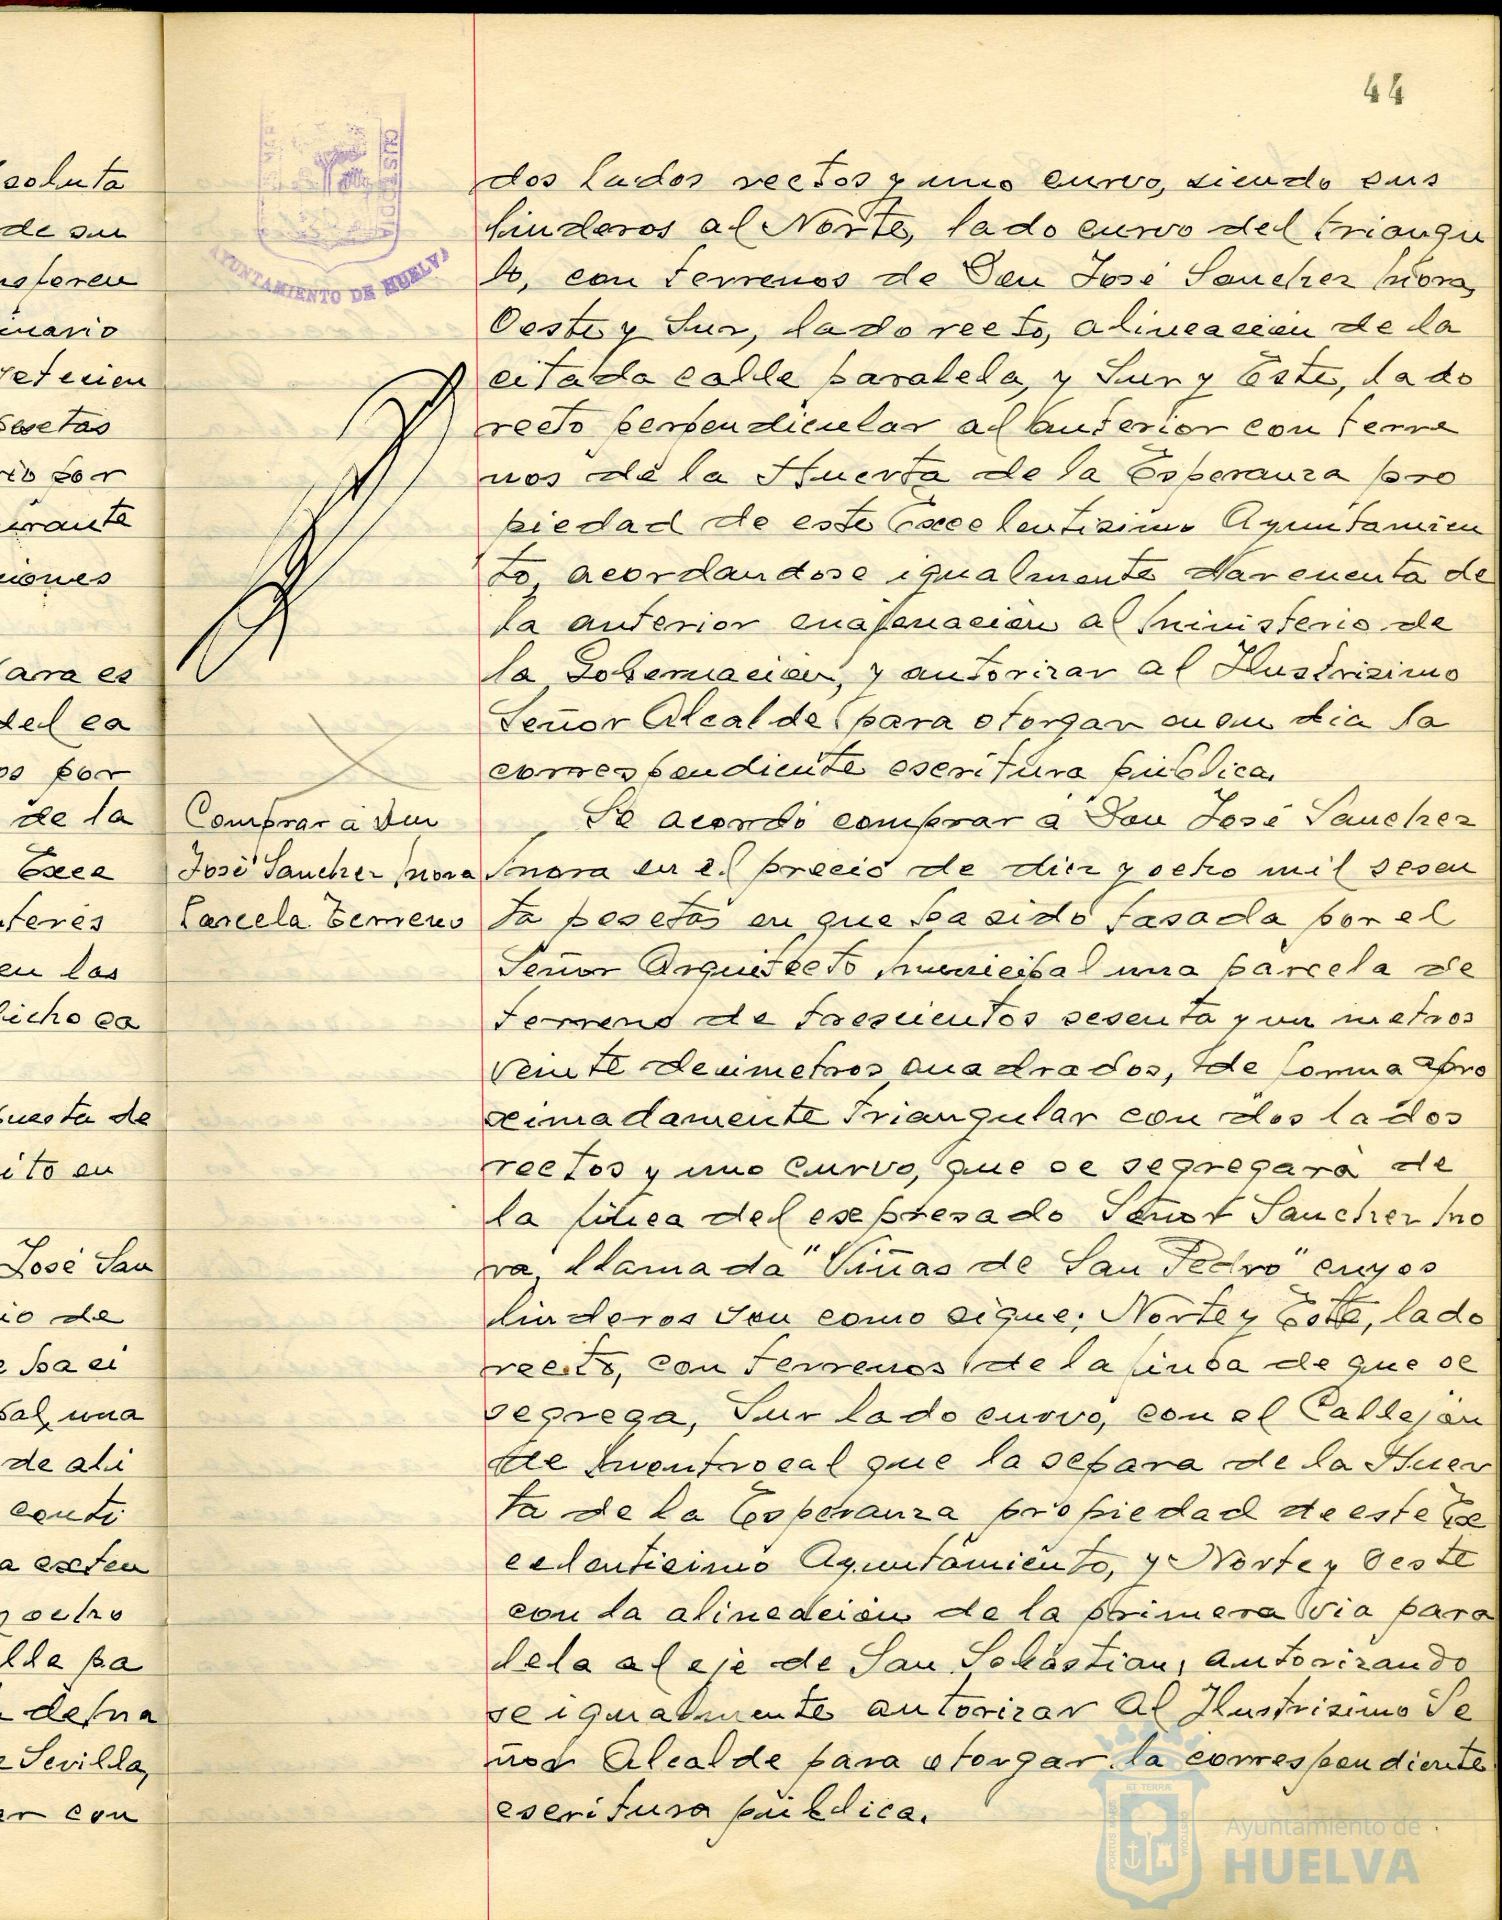 44
AYUNTAMIENTO DE HUELVA
soluta
de su
nsferen
inario
setecien
pesetas
rio por
urante
ciones
ara es
del ca
os por
de la
Exce
nteres
en las
dicho ca
puesta de
ito en
José San
io de
e ha si
pal, una
de ali
conti
a exten
y ocho
lle pa
Sevilla,
er con
dos lados rectos y uno curvo, siendo sus
linderos al Norte, lado curvo del triangu
lo, con terrenos de Don José Sanchez Mora,
Oeste y Sur, lado recto, alineación de la
citada calle paralela, y Sur y Este, lado
recto perpendicular al anterior con terre
nos de la Huerta de la Esperanza pro
piedad de este Excelentisimo Ayuntamien
to, acordandose igualmente dar cuenta de
la anterior enajenación al Ministerio de
la Gobernación, y autorizar al Ilustrisimo
Señor Alcalde para otorgar en su dia la
correspondiente escritura pública.
Comprar a Don
José Sanchez Mora
Parcela Terreno
Se acordó comprar a Don José Sanchez
Mora en el precio de diez y ocho mil sesen
ta pesetas en que ha sido tasada por el
Señor Arquitecto Municipal una parcela de
terreno de trescientos sesenta y un metros
veinte decimetros cuadrados, de forma apro
ximadamente triangular con dos lados
rectos y uno curvo, que se segregará de
la finca del expresado Señor Sanchez Mo
ra, llamada "Viñas de San Pedro" cuyos
linderos son como sigue: Norte y Este, lado
recto, con terrenos de la finca de que se
segrega, Sur lado curvo, con el Callejón
de Montrocal que la separa de la Huer
ta de la Esperanza propiedad de este Ex
celentisimo Ayuntamiento, y Norte y Oeste
con la alineación de la primera via para
lela al eje de San Sebastian, autorizando
se igualmente autorizar al Ilustrisimo Se
ñor Alcalde para otorgar la correspondiente
escritura pública.
Ayuntamiento de
HUELVA